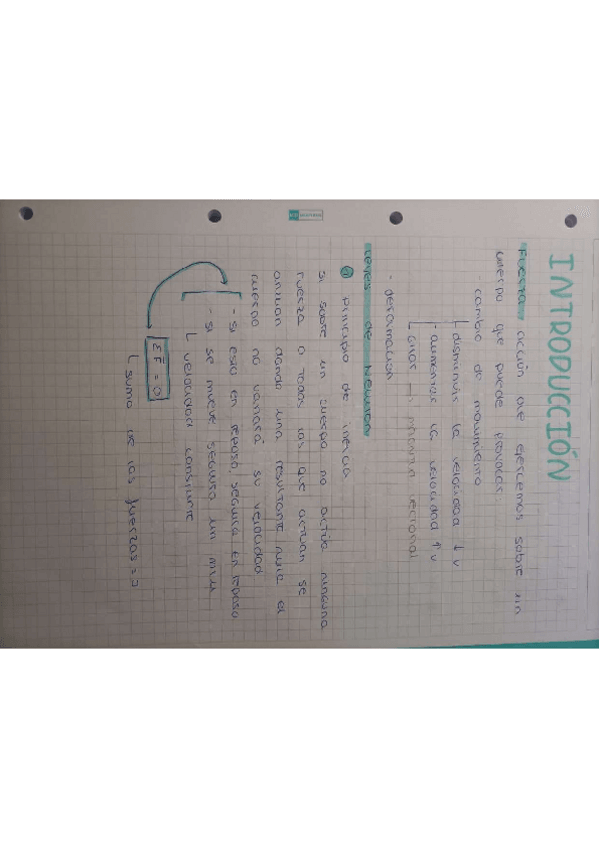 INTRODUCCIÓN
Fuerza acción que ejercemos sobre un
cuerpo que puede provocar:
- cambio de movimiento
- disminuir la velocidad ↓ v
- aumentar la velocidad ↑ v
giros →
- deformación
Leyes de Newton
① Principio de inercia
si sobre un cuerpo no actúa ninguna
fuerza o todas las que actúan se
anulan dando una resultante nula el
cuerpo no variará su velocidad
- si está en reposo, seguirá en reposo
- si se mueve seguirá un mru
velocidad constante
ΣF = 0
suma de las fuerzas = 0